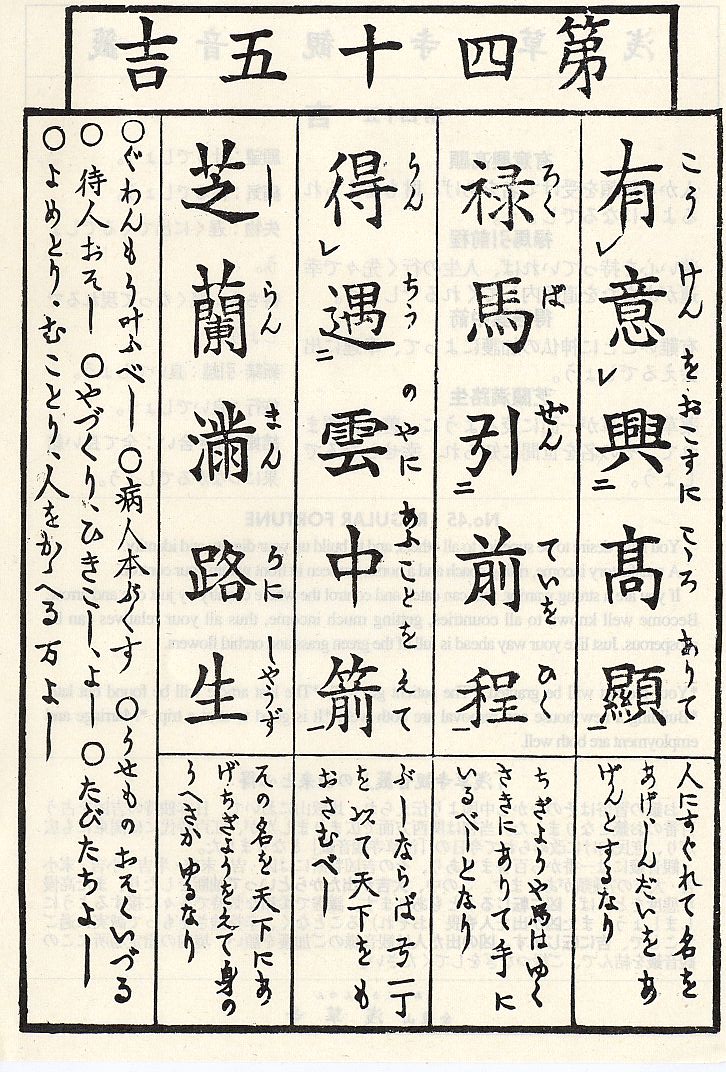 第四十五吉
有レ意レ興二高顯一
こうけんをおこすにこゝろありて
人にすぐれて名を
あげ、しんだいをあ
げんとするなり
禄馬引二前程一
ろくばぜんていをひく
ちぎようや馬はゆく
さきにありて手に
いるべしとなり
得レ遇二雲中箭一
うんちうのやにあふことをえて
ぶしならば弓一丁
を以、天下をも
おさむべし
芝蘭滿路生
しらんまんろにしやうず
その名を天下にあ
げちぎようをえて身の
うへさかゆるなり
○ぐわんもう叶ふべし ○病人本ぷくす ○うせものおそくいづる
○待人おそし ○やづくり、ひきこし、よし ○たびたちよし
○よめとりむことり、人をかゝへる万よし